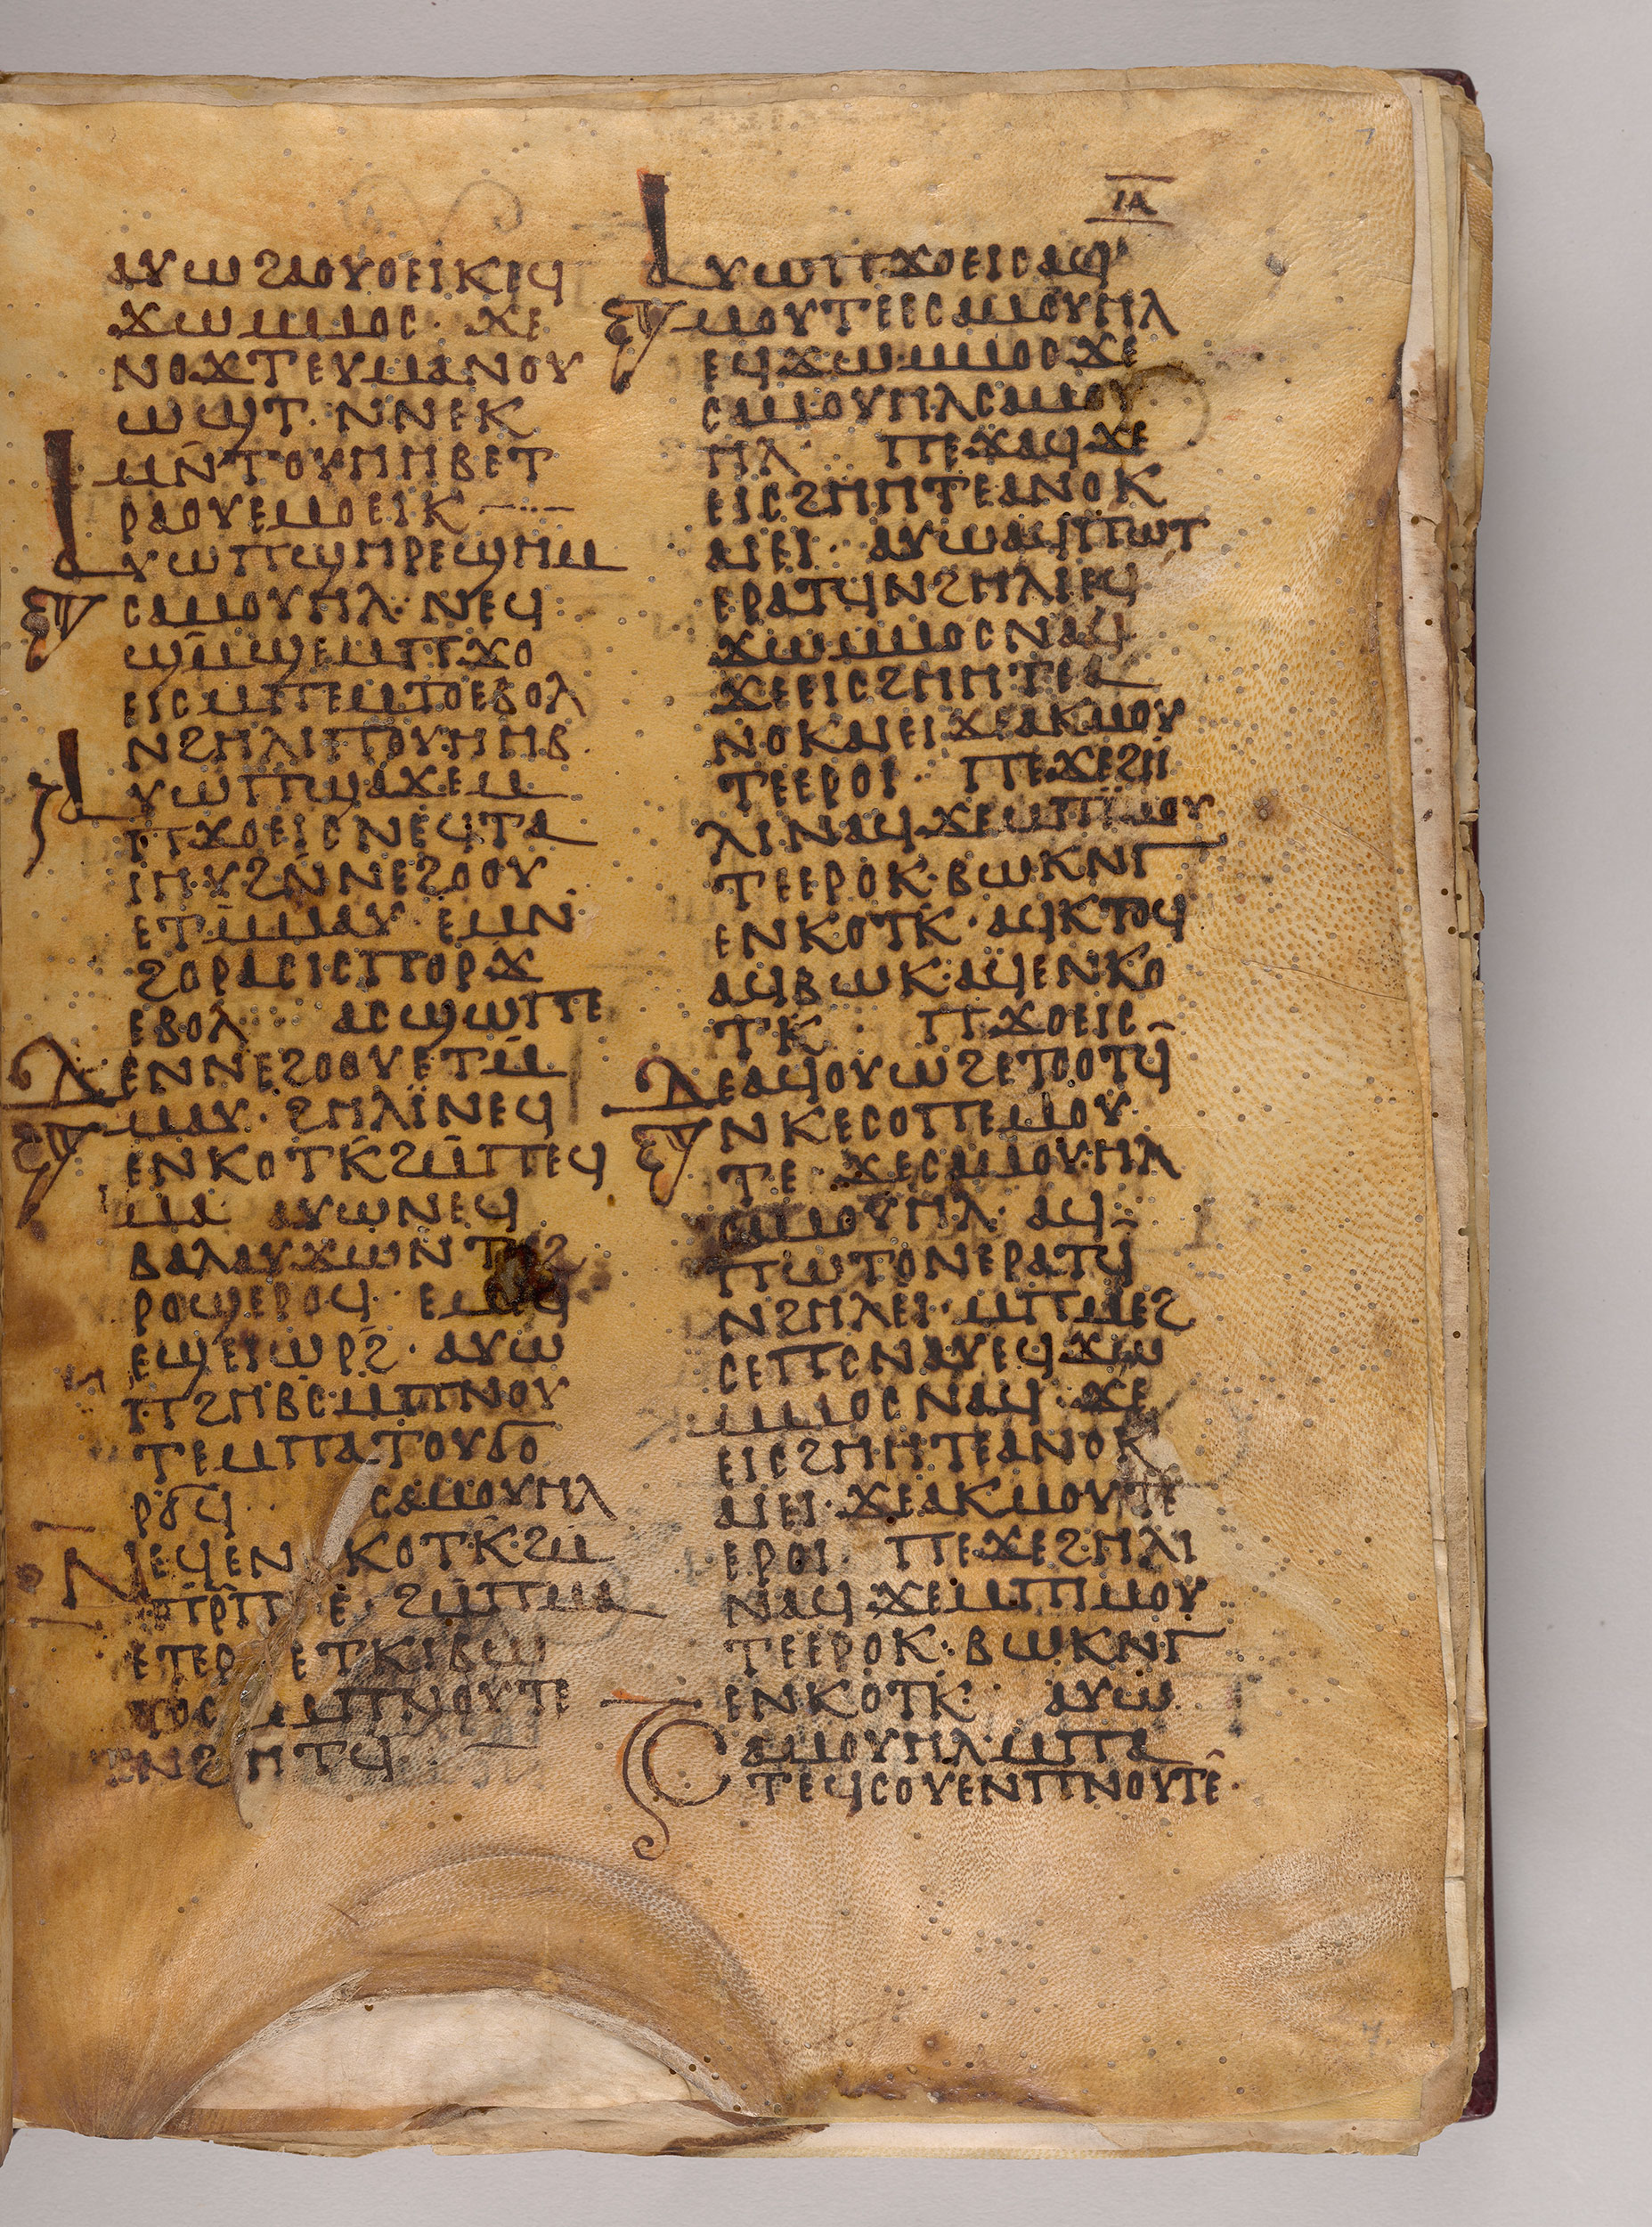 ⲓⲁ
ⲁⲩⲱϩⲁⲟⲩⲟⲉⲓⲕⲉϥ
ϫⲱⲙⲙⲟⲥ· ϫⲉ
ⲛⲟϫⲧⲉⲩⲙⲁⲛⲟⲩ
ⲱϣⲧ·ⲛⲛⲉⲕ
ⲙⲛ̄ⲧⲟⲩⲏⲏⲃⲉⲧ
ⲣⲁⲟⲩⲉⲙⲟⲉⲓⲕ
ⲁⲩⲱⲡϣⲏⲣⲉϣⲏⲙ
ⲥⲁⲙⲟⲩⲏⲗ·ⲛⲉϥ
ϣⲙ̄ϣⲉⲙⲡϫⲟ
ⲉⲓⲥⲙⲡⲉⲙⲧⲟⲉⲃⲟⲗ
ⲛϩⲏⲗⲓⲡⲟⲩⲏⲏⲃ
ⲁⲩⲱⲡϣⲁϫⲉⲙ
ⲡϫⲟⲉⲓⲥⲛⲉϥⲧⲁ
ⲓⲏⲩϩⲛ̄ⲛⲉϩⲟⲟⲩ
ⲉⲧⲙ̄ⲙⲁⲩ· ⲉⲙⲛ̄
ϩⲟⲣⲁⲥⲓⲥⲡⲟⲣϫ
ⲉⲃⲟⲗ· ⲁⲥϣⲱⲡⲉ
ⲇⲉⲛⲛⲉϩⲟⲟⲩⲉⲧⲙ̄
ⲙⲁⲩ·ϩⲏⲗⲓ̈ⲛⲉϥ
ⲉⲛⲕⲟⲧⲕ̄ϩⲙ̄ⲡⲉϥ
ⲙⲁ ⲁⲩⲱⲛⲉϥ
ⲃⲁⲗⲁⲩϫⲱⲛ
ⲣⲟϣⲉⲣⲟϥ· ⲉⲙⲉϥ
ⲉϣⲉⲓⲱⲣϩ̄· ⲁⲩⲱ
ⲡϩⲏⲃⲥⲙⲡⲛⲟⲩ
ⲧⲉⲙⲡⲁⲧⲟⲩϭⲟ
ⲣϭϥ· ⲥⲁⲙⲟⲩⲏⲗ
ⲛⲉϥⲉⲛⲕⲟⲧⲕ̄·ϩⲙ̄
ⲡⲣ̄ⲡⲉ· ϩⲙ̄ⲡⲙⲁ
ⲉⲧⲉⲣⲉⲧⲕⲓⲃⲱ
ⲧⲟⲥⲙⲡⲛⲟⲩⲧⲉ
ⲛϩⲏⲧϥ
ⲁⲩⲱⲡϫⲟⲉⲓⲥⲁϥ
ⲙⲟⲩⲧⲉⲉⲥⲁⲙⲟⲩⲏⲗ
ⲉϥϫⲱⲙⲙⲟⲥϫⲉ
ⲥⲁⲙⲟⲩⲏⲗⲥⲁⲙⲟⲩ
ⲏⲗ· ⲡⲉϫⲁϥϫⲉ
ⲉⲓⲥϩⲏⲏⲧⲉⲁⲛⲟⲕ
ⲁⲓⲉⲓ· ⲁⲩⲱⲁϥⲡⲱⲧ
ⲉⲣⲁⲧϥⲛϩⲏⲗⲓⲉϥ
ϫⲱⲙⲙⲟⲥⲛⲁϥ
ϫⲉⲉⲓⲥϩⲏⲏⲧⲉⲁ
ⲛⲟⲕⲁⲓⲉⲓϫⲉⲁⲕⲙⲟⲩ
ⲧⲉⲉⲣⲟⲓ· ⲡⲉϫⲉϩⲏ
ⲗⲓⲛⲁϥϫⲉⲙⲡⲓ̈ⲙⲟⲩ
ⲧⲉⲉⲣⲟⲕ·ⲃⲱⲕⲛⲅ
ⲉⲛⲕⲟⲧⲕ̄·ⲁϥⲕⲧⲟϥ
ⲁϥⲃⲱⲕ·ⲁϥⲉⲛⲕⲟ
ⲧⲕ· ⲡϫⲟⲉⲓⲥ
ⲇⲉⲁϥⲟⲩⲱϩⲉⲧⲟⲟⲧϥ̄
ⲛⲕⲉⲥⲟⲡⲉⲙⲟⲩ
ⲧⲉ· ϫⲉⲥⲁⲙⲟⲩⲏⲗ
ⲥⲁⲙⲟⲩⲏⲗ· ⲁϥ
ⲡⲱⲧⲟⲛⲉⲣⲁⲧϥ̄
ⲛϩⲏⲗⲉⲓ·ⲙⲡⲙⲉϩ
ⲥⲉⲡⲥⲛⲁⲩⲉϥϫⲱ
ⲙⲙⲟⲥⲛⲁϥ· ϫⲉ
ⲉⲓⲥϩⲏⲏⲧⲉⲁⲛⲟⲕ
ⲁⲓⲉⲓ·ϫⲉⲁⲕⲙⲟⲩⲧⲉ
ⲉⲣⲟⲓ· ⲡⲉϫⲉϩⲏⲗⲓ
ⲛⲁϥϫⲉⲙⲡⲓⲙⲟⲩ
ⲧⲉⲉⲣⲟⲕ·ⲃⲱⲕⲛⲅ
ⲉⲛⲕⲟⲧⲕ̄· ⲁⲩⲱ
ⲥⲁⲙⲟⲩⲏⲗ·ⲙⲡⲁ
ⲧⲉϥⲥⲟⲩⲉⲛⲡⲛⲟⲩⲧⲉ̂·